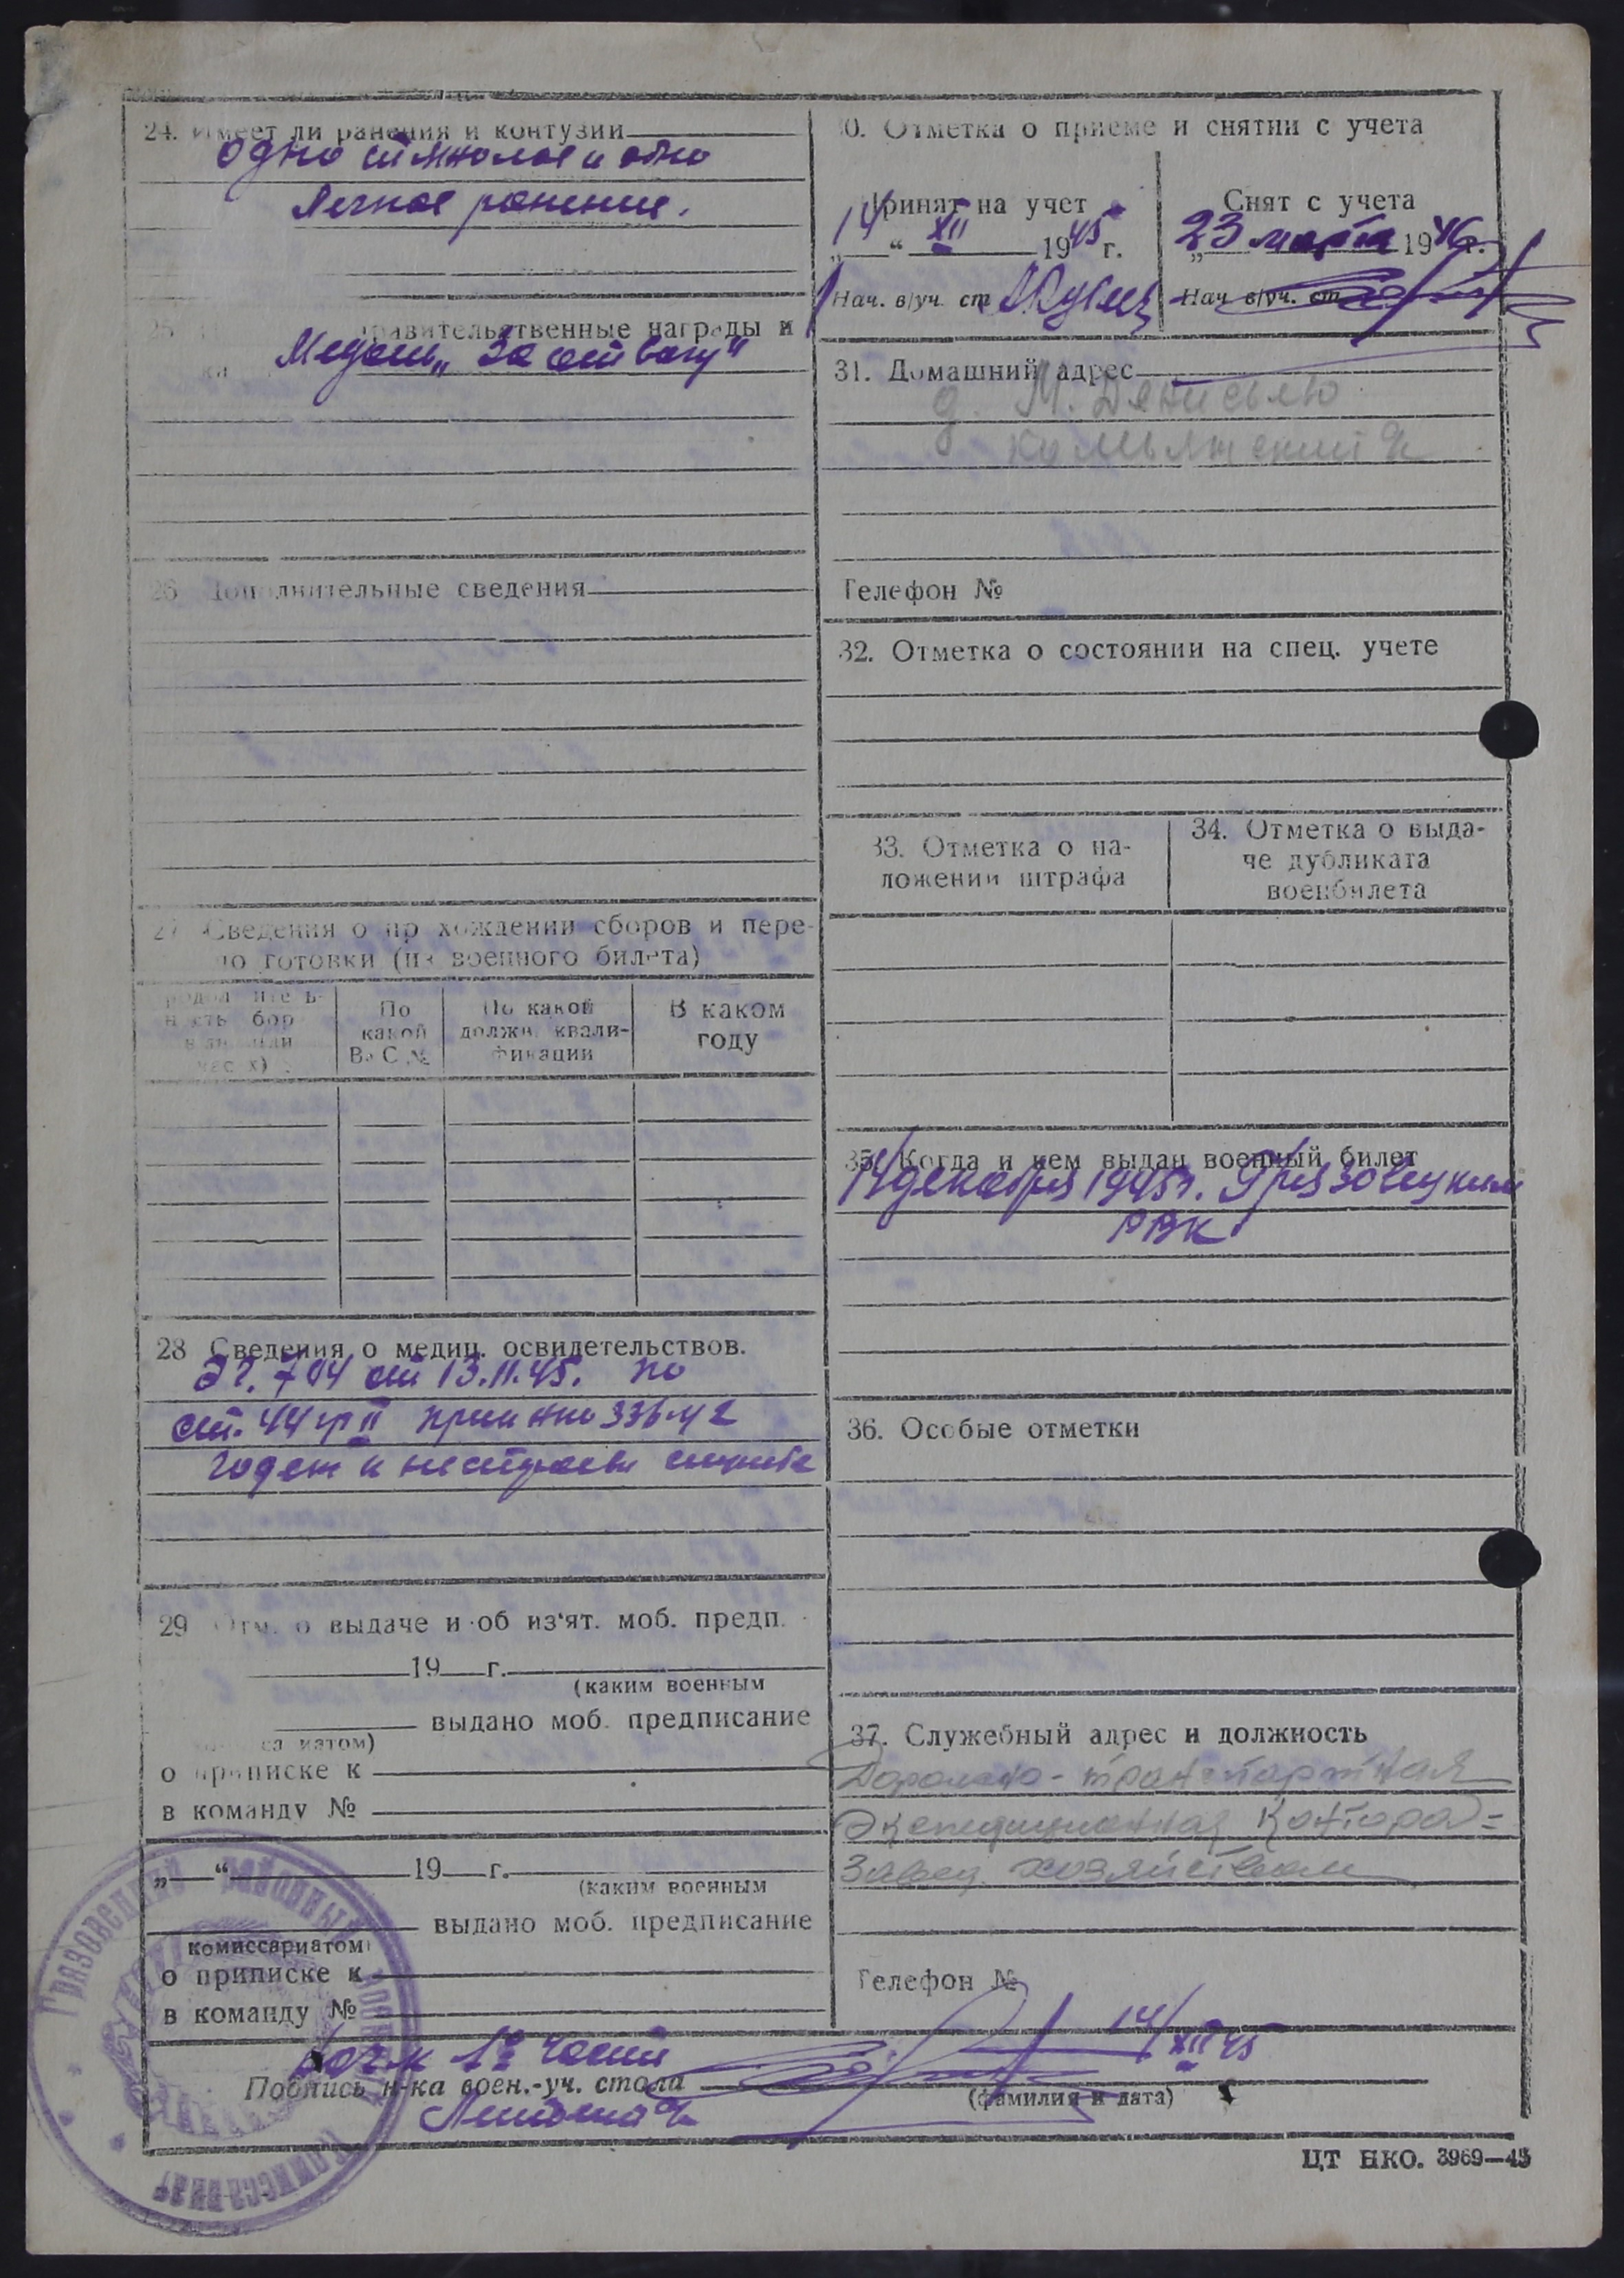 24. Имеет ли ранения и контузии
одно тяжолое и одно
легкое ранение.
правительственные награды и
Медаль „За отвагу"
26 Дополнительные сведения
27 Сведения о прохождении сборов и пере-
подготовки (из военного билета)
По
какой
ВУС №
По какой
должн. квали-
фикации
В каком
году
28 Сведения о медиц. освидетельствов.
от 13.11.45. по
ст. 44 гр II приказ НКО 336-42
годен к нестроевой службе
29 Отм. о выдаче и об из'ят. моб. предп.
19 г.
(каким военным
выдано моб. предписание
о приписке к
в команду №
„ “ 19 г.
(каким военным
выдано моб. предписание
комиссариатом)
о приписке к
в команду №
30. Отметка о приеме и снятии с учета
Принят на учет
14 “ XII 1945 г.
Нач. в/уч. ст
Снят с учета
„23 марта 1946 г.
Нач. в/уч. ст.
31. Домашний адрес
д. М. Денисьево
Телефон №
32. Отметка о состоянии на спец. учете
33. Отметка о на-
ложении штрафа
34. Отметка о выда-
че дубликата
военбилета
35. Когда и кем выдан военный билет
14 декабря 1945г. Грязовецким
РВК
36. Особые отметки
37. Служебный адрес и должность
транспортная
Экспедиционная контора =
Завед. хозяйством
Телефон №
Нач-к 1й части
14/XII 45
Подпись н-ка воен.-уч. стола
(фамилия и дата)
Лейтенант
Грязовецкий районный военный комиссариат
ЦТ НКО. 3969—45